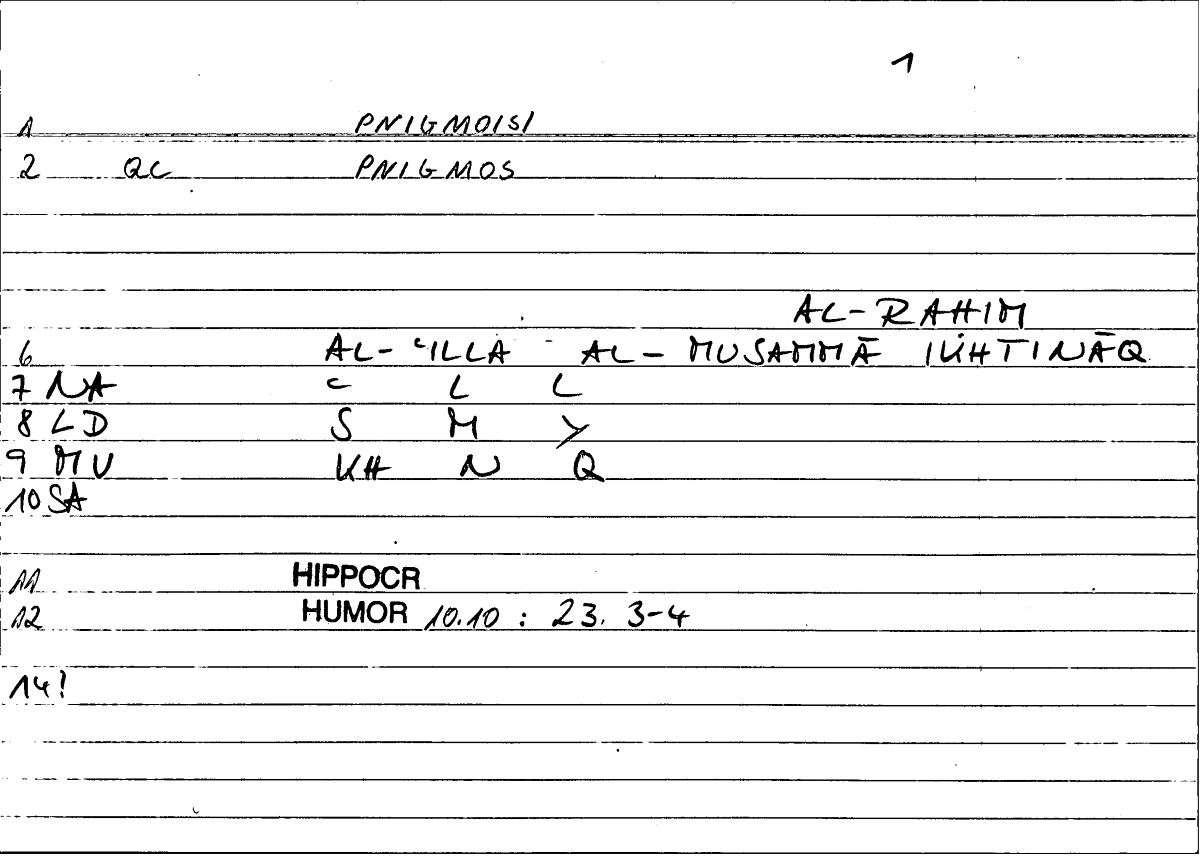 1
1 PNIGMOISI
2 QC PNIGMOS
AL-RAHIM
6 AL-ʿILLA AL-MUSAMMĀ IKHTINĀQ
7 NA ʿ L L
8 LD S M Y
9 MU KH N Q
10 SA
11 HIPPOCR
12 HUMOR 10.10 : 23. 3-4
14!